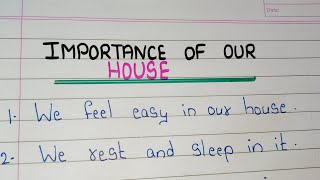 Date:
IMPORTANCE OF OUR
HOUSE
1. We feel easy in our house.
2. We rest and sleep in it.